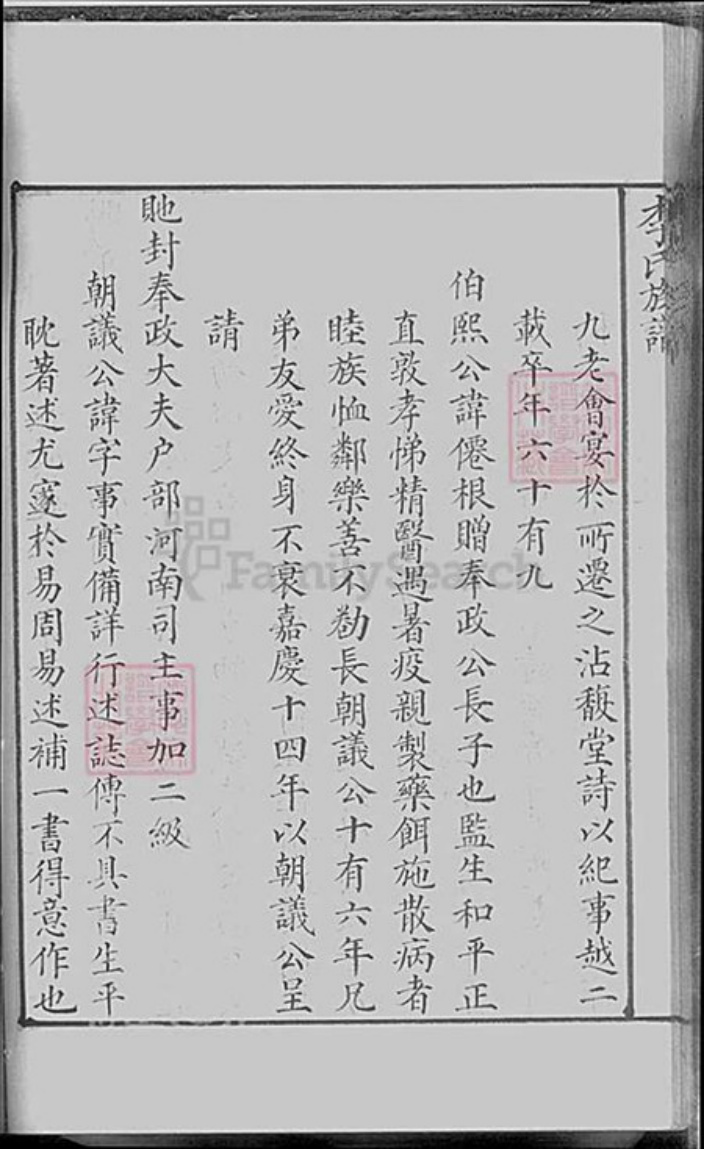 李氏族譜
九老會宴於所遷之沾馥堂詩以紀事越二
載卒年六十有九
伯熙公諱僊根贈奉政公長子也監生和平正
直敦孝悌精醫遇暑疫親製藥餌施散病者
睦族恤鄰樂善不勌長朝議公十有六年兄
弟友愛終身不衰嘉慶十四年以朝議公呈
請
貤封奉政大夫户部河南司主事加二級
朝議公諱字事實備詳行述誌傳不具書生平
耽著述尤邃於易周易述補一書得意作也
FamilySearch